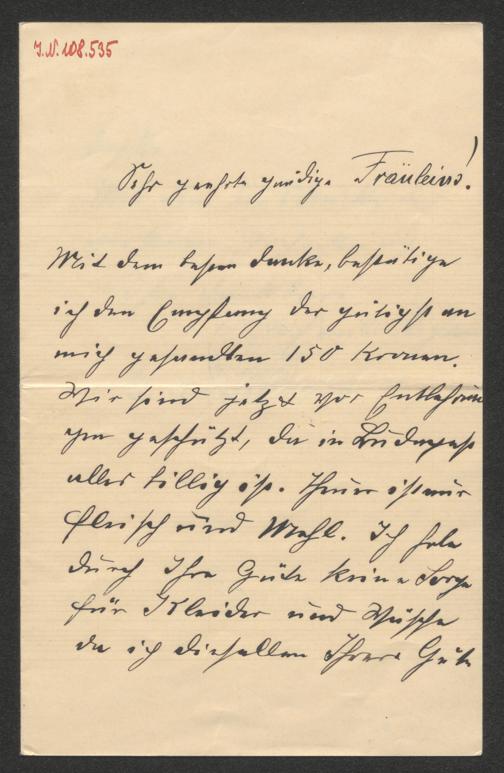 J.N. 108.535
Sehr geehrte gnädige Fräuleins!
Mit dem besten Danke, bestätige
ich den Empfang der gütigst an
mich gesandten 150 Kronen.
Wir sind jetzt vor Entbehrun
gen geschützt, da in Budapest
alles billig ist. Theuer ist nur
Fleisch und Mehl. Ich habe
durch Ihre Güte keine Sorge
für Kleider und Wäsche
da ich dieselben Ihrer Güte